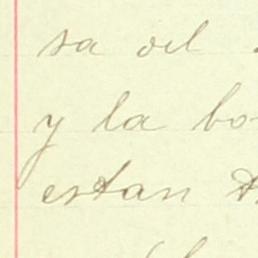 sa del
y la bo
estan